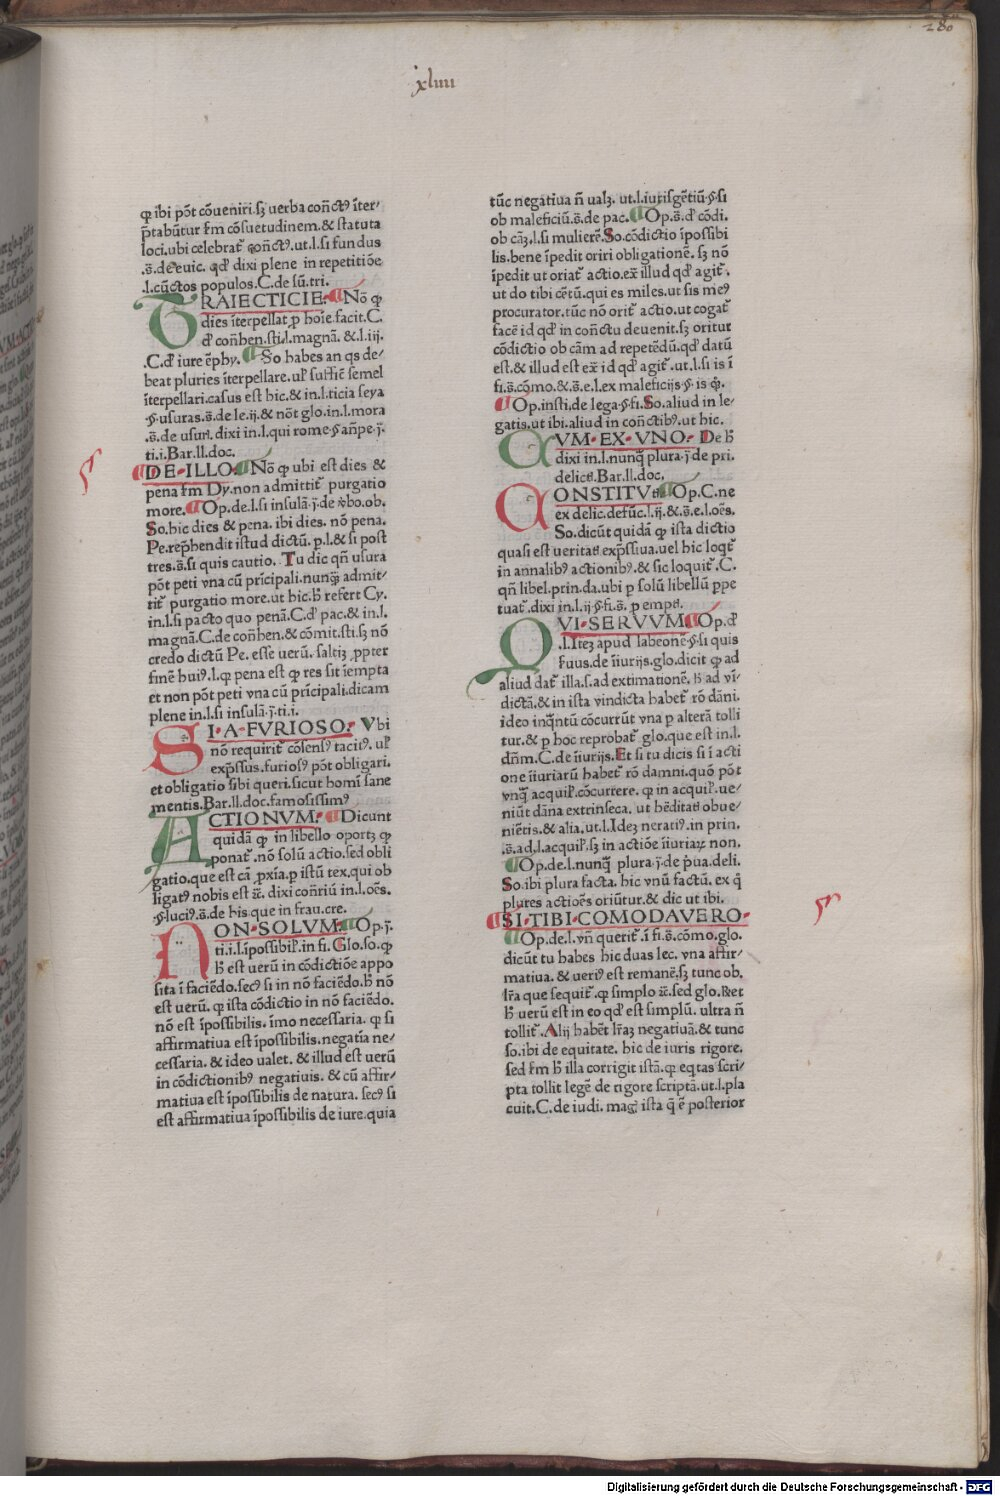 280
xliiii
ꝙ ibi põt cõueniri.sꝫ uerba cõñctꝰ ĩter/
p̃tabũtur ẜm cõsuetudinem.& statuta
loci.ubi celebrat᷑ ꝯñctꝰ.ut.l.si fundus
.s̃.de euic. qđ dixi plene in repetitiõe
.l.cũctos populos.C.de sũ.tri.
TRAIECTICIE. Nõ ꝙ
dies ĩterpellat.ꝓ hoĩe facit.C.
đ coñ̃hen.sti.l.magnã. &.l.iij.
.C.đ iure ẽphy. So habes an qs de/
beat pluries ĩterpellare. uł sufficẽ semel
ĩterpellari.casus est hic.& in.l.ticia seya
.§.usuras.s̃.de le.ij.& nõt glo.in.l.mora
.s̃.de usuri. dixi in.l.qui rome.§.añpe.j̃.
ti.i.Bar.ll.doc.
DE.ILLO. Nõ ꝙ ubi est dies &
pena ẜm Dy.non admittit᷑ purgatio
more. Op.de.l.si insulã.j̃.de ṽbo.ob.
So.hic dies & pena. ibi dies. nõ pena.
Pe.rep̃hendit istud dictũ. ꝓ.l.& si post
tres.s̃.si quis cautio. Tu dic qñ usura
põt peti vna cũ prĩcipali.nunꝗ̃ admit/
tit᷑ purgatio more.ut hic.ħ refert Cy.
in.l.si pacto quo penã.C.đ pac.& in.l.
magnã.C.de coñ̃hen.& cõmit.sti.sꝫ nõ
credo dictũ Pe. esse uerũ. saltiꝫ ꝓpter
finẽ huiꝰ.l.ꝙ pena est ꝙ res sit ĩempta
et non põt peti vna cũ prĩcipali.dicam
plene in.l.si insulã.j̃.ti.i.
SI.A.FVRIOSO. Vbi
nõ requirit᷑ cõsensꝰ tacitꝰ. uł
exp̃ssus.furiosꝰ põt obligari.
et obligatio sibi queri.sicut homĩ sane
mentis.Bar.ll.doc.famosissimꝰ
ACTIONVM. Dicunt
quidã ꝙ in libello oportꝫ ꝙ
ponat᷑.nõ solũ actio.sed obli
gatio.que est cã ꝓxĩa.ꝑ istũ tex.qui ob
ligatꝰ nobis est ẽt. dixi coñriũ in.l.oẽs.
.§.luciꝰ.s̃.de his que in frau.cre.
NON.SOLVM. Op.j̃.
ti.i.l.ĩpossibił.in fi. Glo.so.ꝙ
ħ est uerũ in cõdictiõe appo
sita ĩ faciẽdo.secꝰ si in nõ faciẽdo.ħ nõ
est uerũ. ꝙ ista cõdictio in nõ faciẽdo.
nõ est ĩpossibilis. ĩmo necessaria. ꝙ si
affirmatiua est ĩpossibilis.negatĩa ne/
cessaria. & ideo ualet. & illud est uerũ
in cõdictionibꝰ negatiuis. & cũ affir/
matiua est ĩpossibilis de natura. secꝰ si
est affirmatiua ĩpossibilis de iure.quia
tũc negatiua ñ ualꝫ. ut.l.iurisgẽtiũ.§.si
ob maleficiũ.s̃.de pac. Op.s̃.đ cõdi.
ob cãꝫ.l.si mulierẽ. So.cõdictio ĩpossibi
lis.bene ĩpedit oriri obligationẽ. sꝫ nõ
ĩpedit ut oriat᷑ actio.ex illud qđ agit᷑.
ut do tibi cẽtũ.qui es miles.ut sis meꝰ
procurator.tũc nõ orit᷑ actio.ut cogat᷑
facẽ id qđ in coñctu deuenit.sꝫ oritur
cõdictio ob cãm ad repetẽdũ.qđ datũ
est.& illud est ex id qđ agit᷑.ut.l.si is ĩ
fi.s̃.cõmo.&.s̃.e.l.ex maleficijs.§.is q̃.
Op.insti.de lega.§.fi. So.aliud in le/
gatis.ut ibi.aliud in coñctibꝰ.ut hic.
CVM.EX.VNO. De ħ
dixi in.l.nunꝗ̃ plura.j̃.de pri.
delictis.Bar.ll.doc.
CONSTITVtis. Op.C.ne
ex delic.defũc.l.ij.&.s̃.e.l.oẽs.
So.dicũt quidã ꝙ ista dictio
quasi est ueritatis exp̃ssiua.uel hic loqt᷑
in annalibꝰ actionibꝰ.& sic loquit᷑.C.
qñ libel.prin.da.ubi ꝑ solũ libellũ ꝑpe
tuat᷑.dixi in.l.ij.§.fi.s̃. ꝓ empt.
QVI.SERVVM. Op.đ
.l.Iteꝫ apud labeonẽ.§.si quis
ẜuus.de ĩiurijs.glo.dicit ꝙ ad
aliud dat᷑ illa.s.ad extimationẽ. ħ ad vĩ
dictã.& in ista vindicta habet᷑ rõ dãni.
ideo inꝗ̃ntũ cõcurrũt vna ꝑ alterã tolli
tur.& ꝑ hoc reprobat᷑ glo.que est in.l.
dñm.C.de ĩiurijs. Et si tu dicis si ĩ acti
one ĩiuriarũ habet᷑ rõ damni.quõ põt
vnꝗ̃ acquił.cõcurrere. ꝙ in acquił.ue/
niũt dãna extrinseca. ut hẽditati obue/
niẽtis.& alia.ut.l.Ideꝫ neratiꝰ.in prin.
.s̃.ad.l.acquił.sꝫ in actiõe ĩiuriaꝝ non.
Op.de.l.nunꝗ̃ plura.j̃.de p̃ua.deli.
So.ibi plura facta. hic vnũ factũ. ex q̃
plures actioẽs oriũtur.& dic ut ibi.
SI.TIBI.COMODAVERO.
Op.de.l.vñ querit᷑.ĩ fi.s̃.cõmo.glo.
dicũt tu habes hic duas lec. vna affir/
matiua. & ueriꝰ est remanẽ.sꝫ tunc ob.
lr̃a que sequit᷑.ꝙ simplo ẽt.sed glo.R̃et
ħ uerũ est in eo qđ est simplũ. ultra ñ
tollit᷑. Alij habẽt lr̃aꝫ negatiuã.& tunc
so.ibi de equitate. hic de iuris rigore.
sed ẜm ħ illa corrigit istã.ꝙ eqtas scri/
pta tollit legẽ de rigore scriptã.ut.l.pla
cuit.C.de iudi. mag̃ ista q̃ ẽ posterior
Digitalisierung gefördert durch die Deutsche Forschungsgemeinschaft - DFG